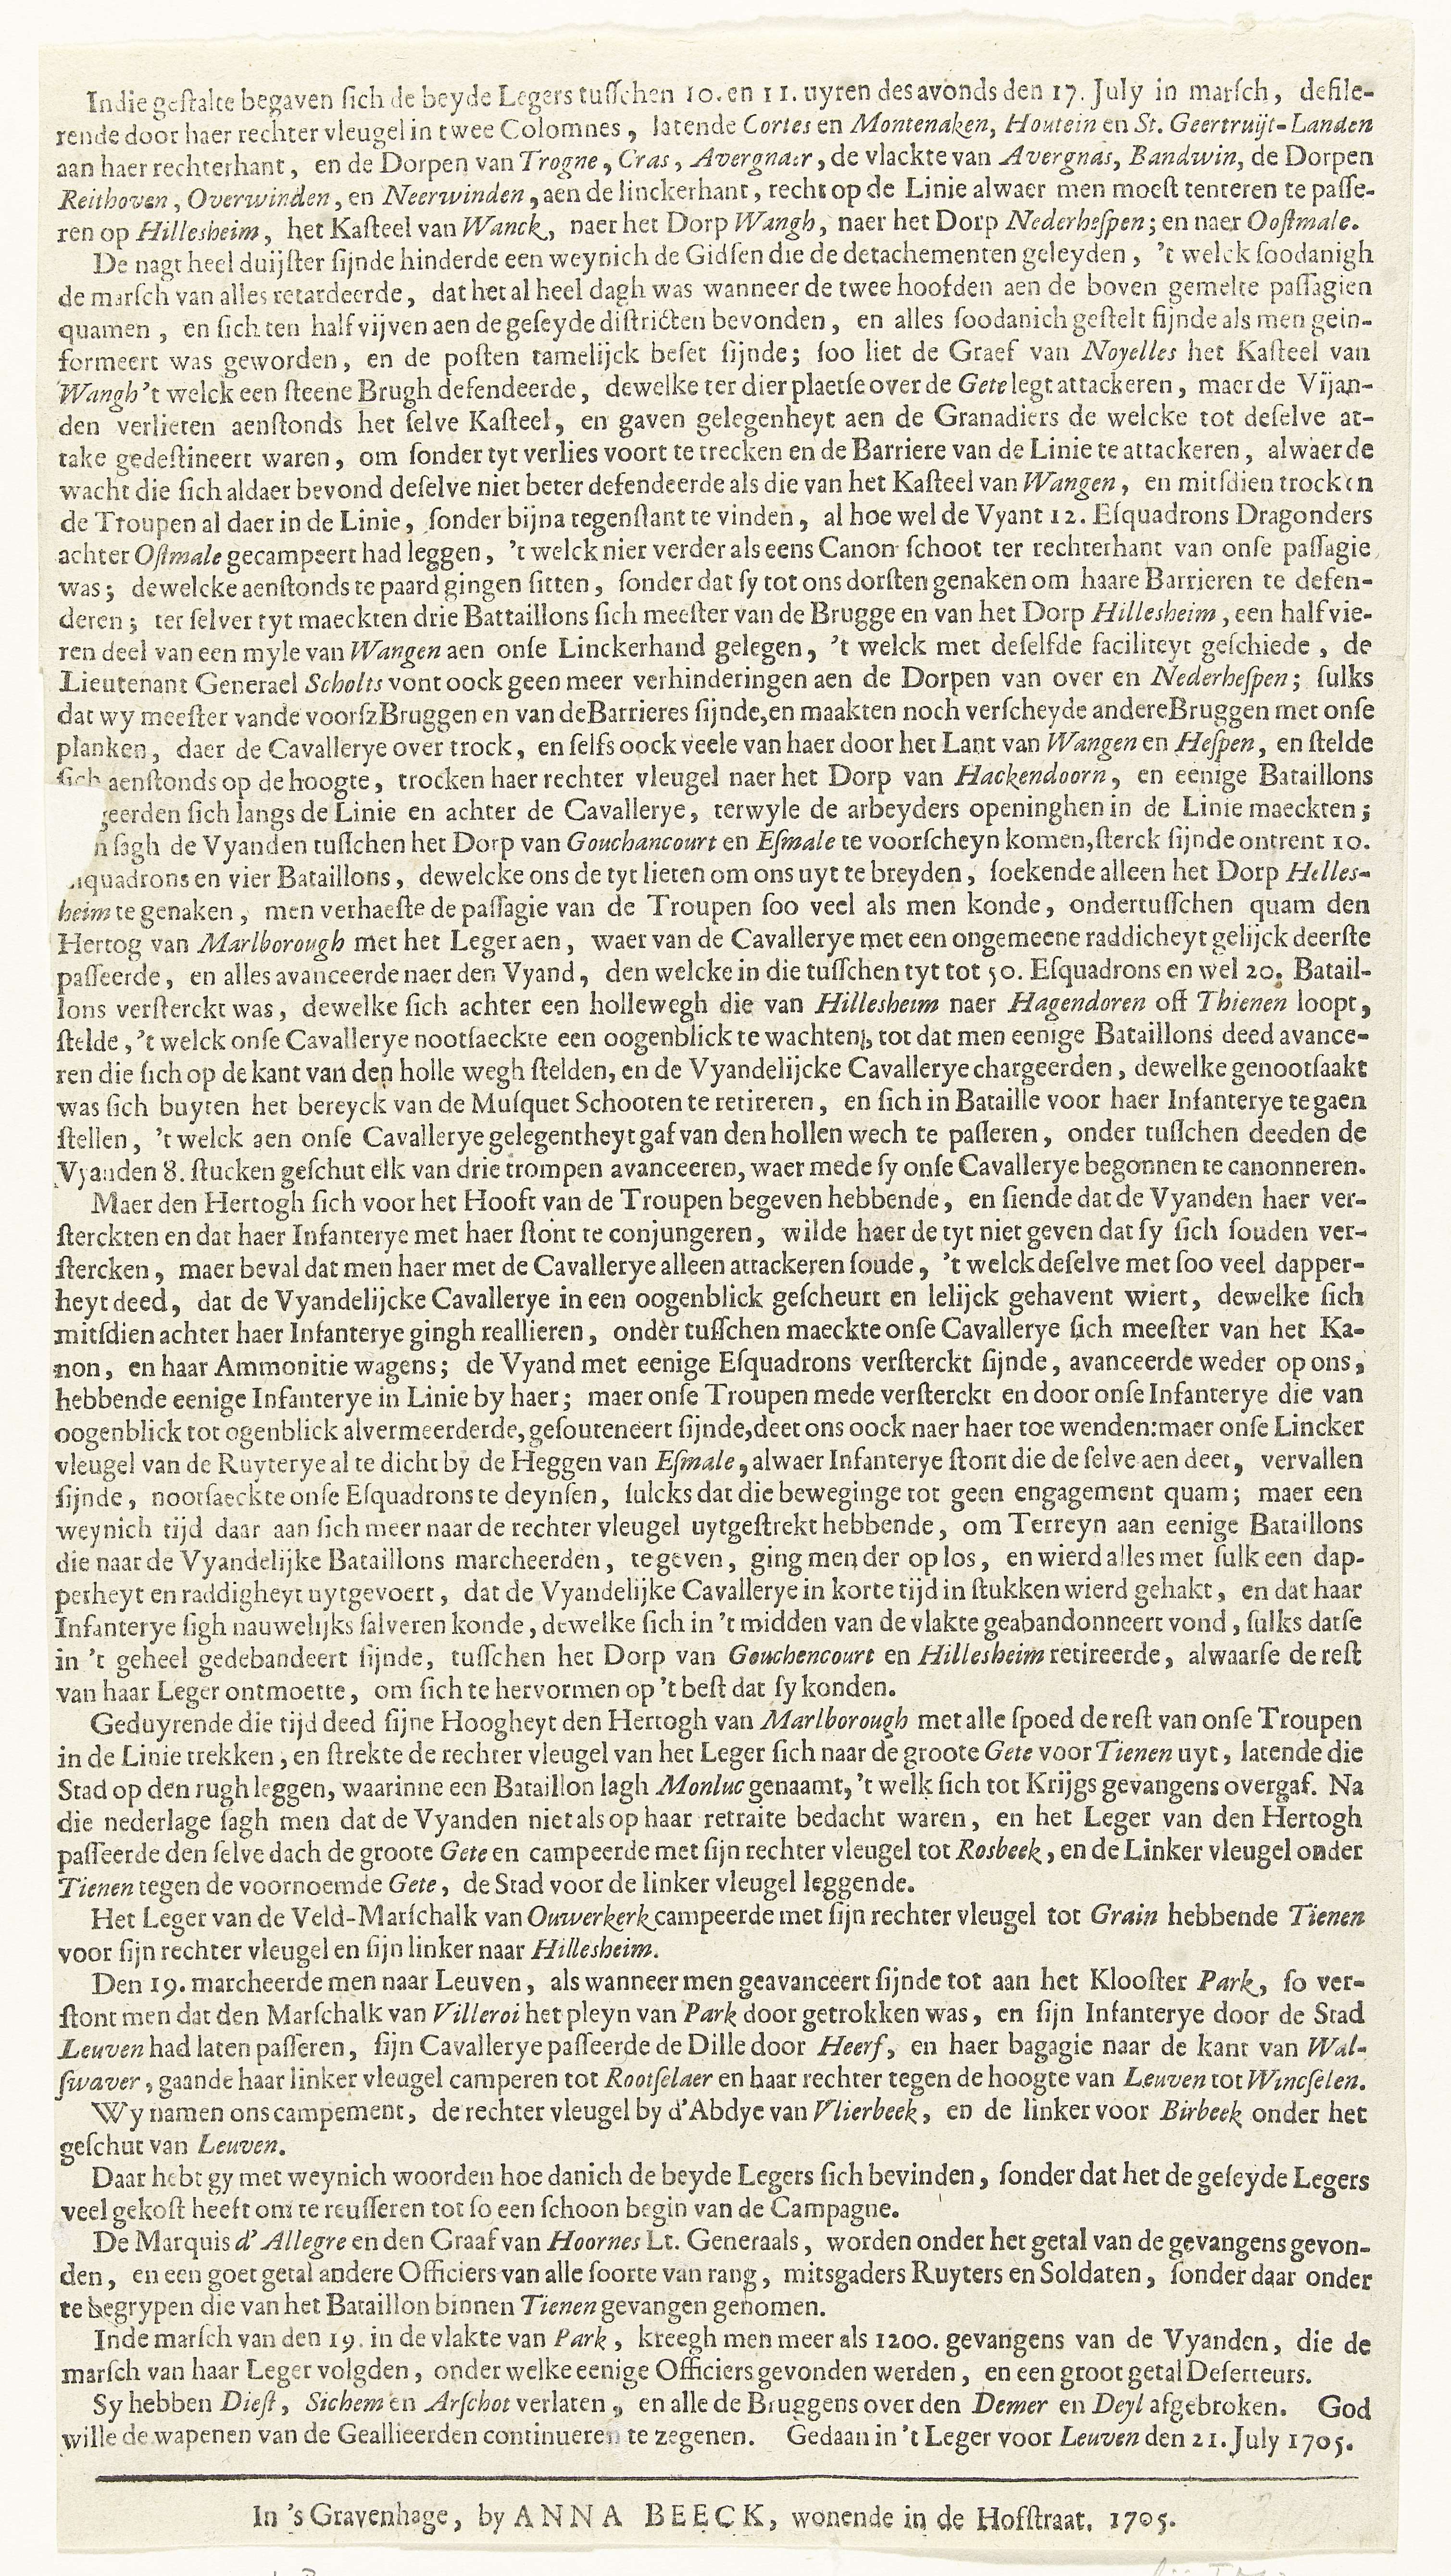 In die gestalte begaven sich de beyde Legers tusschen 10. en 11. uyren des avonds den 17. July in marsch, defile-
rende door haer rechter vleugel in twee Colomnes, latende Cortes en Montenaken, Houtein en St. Geertruijt-Landen
aan haer rechterhant, en de Dorpen van Trogne, Cras, Avergnaer, de vlackte van Avergnas, Bandwin, de Dorpen
Reithoven, Overwinden, en Neerwinden, aen de linckerhant, recht op de Linie alwaer men moest tenteren te passe-
ren op Hillesheim, het Kasteel van Wanck, naer het Dorp Wangh, naer het Dorp Nederhespen; en naer Oostmale.
De nagt heel duijster sijnde hinderde een weynich de Gidsen die de detachementen geleyden, 't welck soodanigh
de marsch van alles retardeerde, dat het al heel dagh was wanneer de twee hoofden aen de boven gemelte passagien
quamen, en sich ten half vijven aen de geseyde districten bevonden, en alles soodanich gestelt sijnde als men gein-
formeert was geworden, en de posten tamelijck beset sijnde; soo liet de Graef van Noyelles het Kasteel van
Wangh 't welck een steene Brugh defendeerde, dewelke ter dier plaetse over de Gete legt attackeren, maer de Vijan-
den verlieten aenstonds het selve Kasteel, en gaven gelegenheyt aen de Granadiers de welcke tot deselve at-
take gedestineert waren, om sonder tyt verlies voort te trecken en de Barriere van de Linie te attackeren, alwaer de
wacht die sich aldaer bevond deselve niet beter defendeerde als die van het Kasteel van Wangen, en mitsdien trocken
de Troupen al daer in de Linie, sonder bijna tegenstant te vinden, al hoe wel de Vyant 12. Esquadrons Dragonders
achter Ostmale gecampeert had leggen, 't welck nier verder als eens Canon schoot ter rechterhant van onse passagie
was; dewelcke aenstonds te paard gingen sitten, sonder dat sy tot ons dorsten genaken om haare Barrieren te defen-
deren; ter selver tyt maeckten drie Battaillons sich meester van de Brugge en van het Dorp Hillesheim, een half vie-
ren deel van een myle van Wangen aen onse Linckerhand gelegen, 't welck met deselfde faciliteyt geschiede, de
Lieutenant Generael Scholts vont oock geen meer verhinderingen aen de Dorpen van over en Nederhespen; sulks
dat wy meester vande voorsz Bruggen en van de Barrieres sijnde, en maakten noch verscheyde andere Bruggen met onse
planken, daer de Cavallerye over trock, en selfs oock veele van haer door het Lant van Wangen en Hespen, en stelde
sich aenstonds op de hoogte, trocken haer rechter vleugel naer het Dorp van Hackendoorn, en eenige Bataillons
geerden sich langs de Linie en achter de Cavallerye, terwyle de arbeyders openinghen in de Linie maeckten;
n sagh de Vyanden tusschen het Dorp van Gouchancourt en Esmale te voorscheyn komen, sterck sijnde ontrent 10.
squadrons en vier Bataillons, dewelcke ons de tyt lieten om ons uyt te breyden, soekende alleen het Dorp Hilles-
heim te genaken, men verhaeste de passagie van de Troupen soo veel als men konde, ondertusschen quam den
Hertog van Marlborough met het Leger aen, waer van de Cavallerye met een ongemeene raddicheyt gelijck deerste
passeerde, en alles avanceerde naer den Vyand, den welcke in die tusschen tyt tot 50. Esquadrons en wel 20. Batail-
lons versterckt was, dewelke sich achter een hollewegh die van Hillesheim naer Hagendoren oft Thienen loopt,
stelde, 't welck onse Cavallerye nootsaeckte een oogenblick te wachten, tot dat men eenige Bataillons deed avance-
ren die sich op de kant van den holle wegh stelden, en de Vyandelijcke Cavallerye chargeerden, dewelke genootsaakt
was sich buyten het bereyck van de Musquet Schooten te retireren, en sich in Bataille voor haer Infanterye te gaen
stellen, 't welck aen onse Cavallerye gelegentheyt gaf van den hollen wech te passeren, onder tusschen deeden de
Vyanden 8. stucken geschut elk van drie trompen avanceeren, waer mede sy onse Cavallerye begonnen te canonneren.
Maer den Hertogh sich voor het Hooft van de Troupen begeven hebbende, en siende dat de Vyanden haer ver-
sterckten en dat haer Infanterye met haer stont te conjungeren, wilde haer de tyt niet geven dat sy sich souden ver-
stercken, maer beval dat men haer met de Cavallerye alleen attackeren soude, 't welck deselve met soo veel dapper-
heyt deed, dat de Vyandelijcke Cavallerye in een oogenblick gescheurt en lelijck gehavent wiert, dewelke sich
mitsdien achter haer Infanterye gingh reallieren, onder tusschen maeckte onse Cavallerye sich meester van het Ka-
non, en haar Ammonitie wagens; de Vyand met eenige Esquadrons versterckt sijnde, avanceerde weder op ons,
hebbende eenige Infanterye in Linie by haer; maer onse Troupen mede versterckt en door onse Infanterye die van
oogenblick tot ogenblick alvermeerderde, gesouteneert sijnde, deet ons oock naer haer toe wenden: maer onse Lincker
vleugel van de Ruyterye al te dicht by de Heggen van Esmale, alwaer Infanterye stont die de selve aen deet, vervallen
sijnde, nootsaeckte onse Esquadrons te deynsen, sulcks dat die beweginge tot geen engagement quam; maer een
weynich tijd daar aan sich meer naar de rechter vleugel uytgestrekt hebbende, om Terreyn aan eenige Bataillons
die naar de Vyandelijke Bataillons marcheerden, te geven, ging men der op los, en wierd alles met sulk een dap-
perheyt en raddigheyt uytgevoert, dat de Vyandelijke Cavallerye in korte tijd in stukken wierd gehakt, en dat haar
Infanterye sigh nauwelijks salveren konde, dewelke sich in 't midden van de vlakte geabandonneert vond, sulks datse
in 't geheel gedebandeert sijnde, tusschen het Dorp van Gouchencourt en Hillesheim retireerde, alwaarse de rest
van haar Leger ontmoette, om sich te hervormen op 't best dat sy konden.
Geduyrende die tijd deed sijne Hoogheyt den Hertogh van Marlborough met alle spoed de rest van onse Troupen
in de Linie trekken, en strekte de rechter vleugel van het Leger sich naar de groote Gete voor Tienen uyt, latende die
Stad op den rugh leggen, waarinne een Bataillon lagh Monluc genaamt, 't welk sich tot Krijgs gevangens overgaf. Na
die nederlage sagh men dat de Vyanden niet als op haar retraite bedacht waren, en het Leger van den Hertogh
passeerde den selve dach de groote Gete en campeerde met sijn rechter vleugel tot Rosbeek, en de Linker vleugel onder
Tienen tegen de voornoemde Gete, de Stad voor de linker vleugel leggende.
Het Leger van de Veld-Marschalk van Ouwerkerk campeerde met sijn rechter vleugel tot Grain hebbende Tienen
voor sijn rechter vleugel en sijn linker naar Hillesheim.
Den 19. marcheerde men naar Leuven, als wanneer men geavanceert sijnde tot aan het Klooster Park, so ver-
stont men dat den Marschalk van Villeroi het pleyn van Park door getrokken was, en sijn Infanterye door de Stad
Leuven had laten passeren, sijn Cavallerye passeerde de Dille door Heerf, en haer bagagie naar de kant van Wal-
swaver, gaande haar linker vleugel camperen tot Rootselaer en haar rechter tegen de hoogte van Leuven tot Wincselen.
Wy namen ons campement, de rechter vleugel by d'Abdye van Vlierbeek, en de linker voor Birbeek onder het
geschut van Leuven.
Daar hebt gy met weynich woorden hoe danich de beyde Legers sich bevinden, sonder dat het de geseyde Legers
veel gekost heeft om te reusseren tot so een schoon begin van de Campagne.
De Marquis d'Allegre en den Graaf van Hoornes Lt. Generaals, worden onder het getal van de gevangens gevon-
den, en een goet getal andere Officiers van alle soorte van rang, mitsgaders Ruyters en Soldaten, sonder daar onder
te begrypen die van het Bataillon binnen Tienen gevangen genomen.
Inde marsch van den 19. in de vlakte van Park, kreegh men meer als 1200. gevangens van de Vyanden, die de
marsch van haar Leger volgden, onder welke eenige Officiers gevonden werden, en een groot getal Deserteurs.
Sy hebben Diest, Sichem en Arschot verlaten, en alle de Bruggens over den Demer en Deyl afgebroken. God
wille de wapenen van de Geallieerden continueren te zegenen. Gedaan in 't Leger voor Leuven den 21. July 1705.
In 's Gravenhage, by ANNA BEECK, wonende in de Hofstraat. 1705.